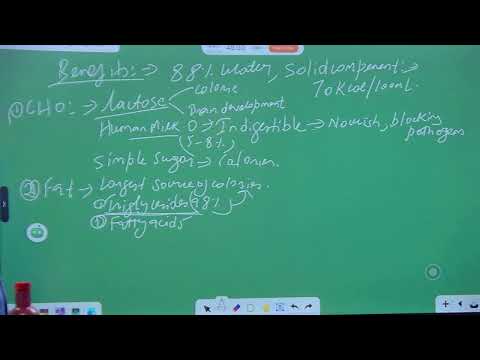 Benefits:→ 88% water, Solid component:→
70 Kcal/100mL.
① CHO:→ Lactose
Calorie
Brain development
Human Milk O → Indigestible → Nourish, blocking pathogens
(5-8%)
Simple Sugar → Calories.
② Fat → Largest source of calories.
① Triglycerides (98%)
② Fatty acids